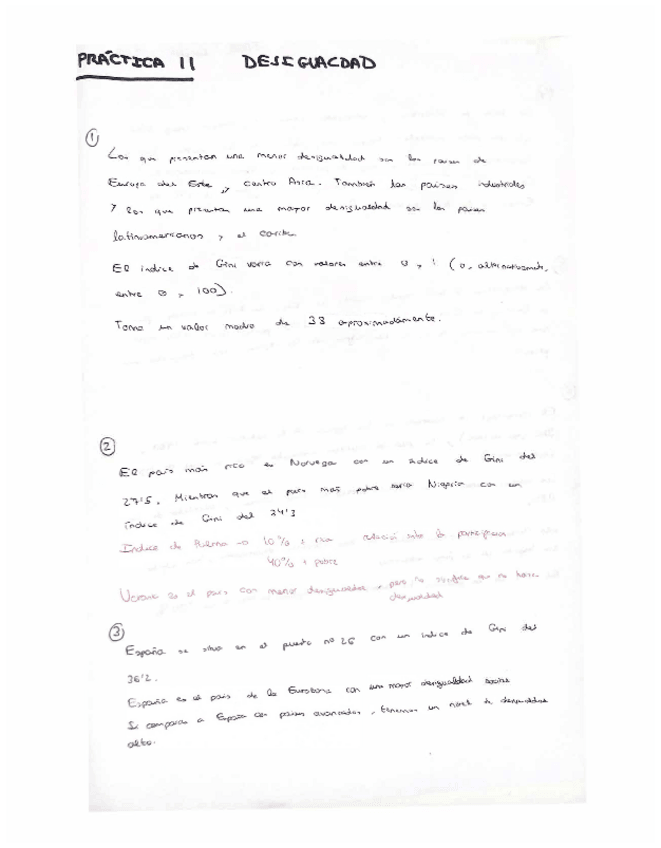 PRÁCTICA 11 DESIGUALDAD
①
Los que presentan una menor desigualdad son los países de
Europa del Este y centro Asia. También los países industriales
Y los que presentan una mayor desigualdad son los países
latinoamericanos y el caribe.
El índice de Gini varía con valores entre 0 y 1 (o, alternativamente,
entre 0 y 100).
Toma un valor medio de 33 aproximadamente.
②
El país más rico es Noruega con un índice de Gini del
27'5. Mientras que el país más pobre sería con un
índice de Gini del 34'3
Índice de Palma → 10% + rico relación entre la
40% + pobre
Ucrania es el país con menor desigualdad, pero no significa que no haya
desigualdad
③
España se sitúa en el puesto nº 26 con un índice de Gini del
36'2.
España es el país de la Eurozona con una mayor desigualdad
Si comparas a España con países avanzados, tenemos un nivel de desigualdad
alto.